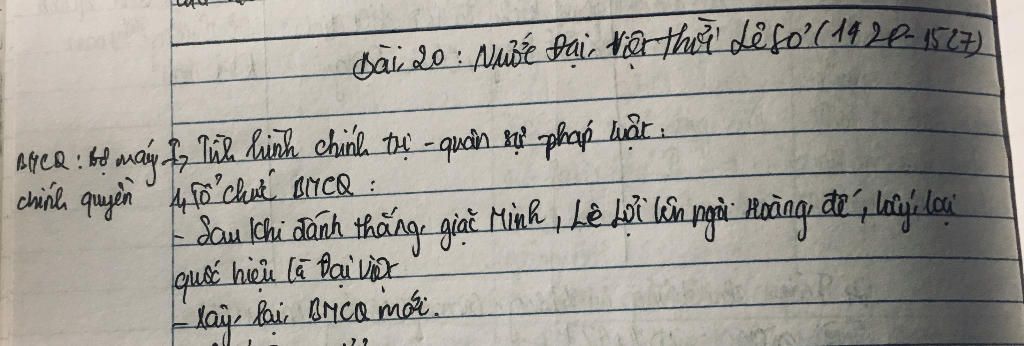 Bài 20: Nước Đại Việt thời Lê Sơ (1428-1527)
BMCQ: Bộ máy
chính quyền
I, Tình hình chính trị - quân sự - pháp luật:
1, Tổ chức BMCQ:
- Sau khi đánh thắng giặc Minh, Lê Lợi lên ngôi Hoàng đế, lấy lại
quốc hiệu là Đại Việt
- Xây lại BMCQ mới.